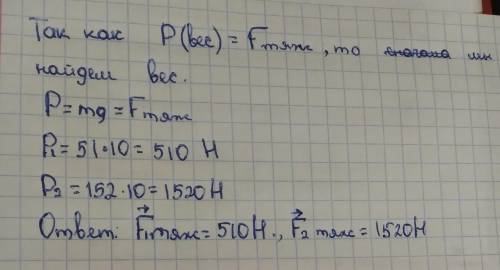 Так как P(вес) = Fтяж, то сначала мы
найдем вес.
P=mg=Fтяж
P₁=51·10=510 H
P₂=152·10=1520H
Ответ: F⃗₁тяж=510H., F⃗₂ тяж=1520H